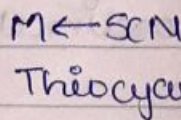 M←SCN
Thiocya